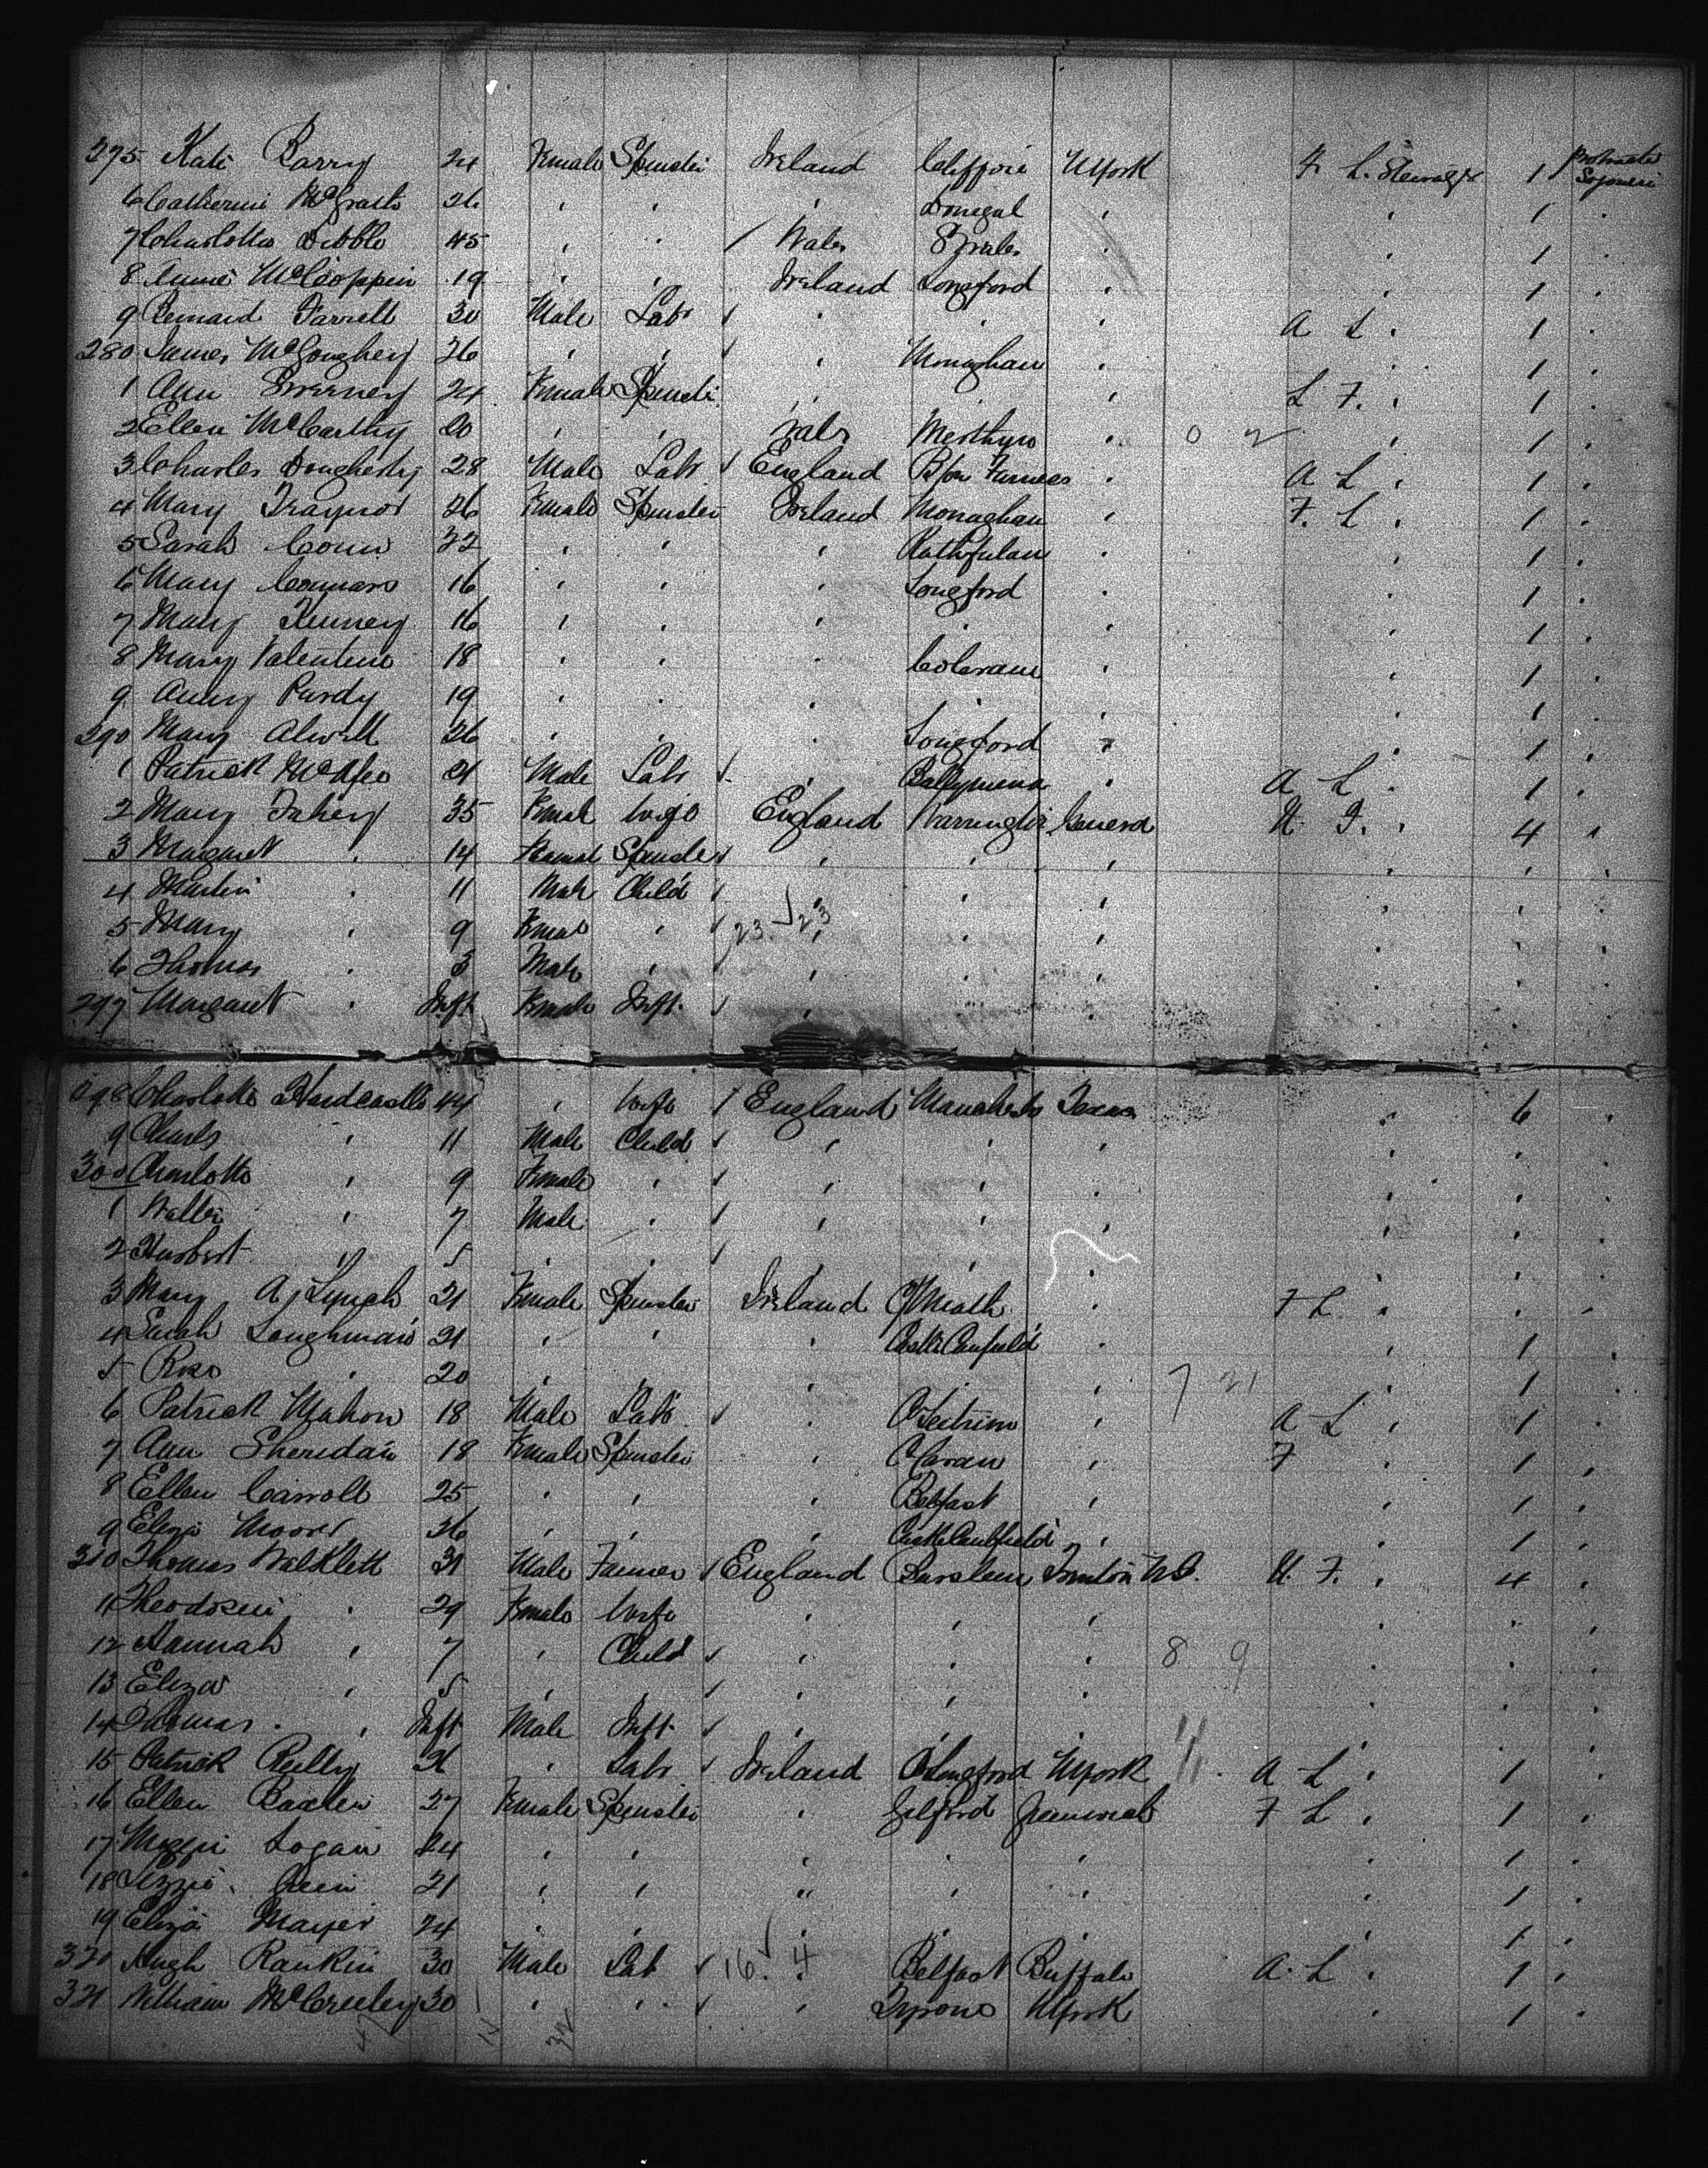 275 Kate Barry 24 Female Spinster Ireland N York F. L. Steerage 1 Protracted Sojourn
6 Catherine McGrath 26 " " " Donegal " " 1 "
7 Charlotte Dibble 45 " " / Wales " " 1 "
8 Annie 19 " " Ireland Longford " " 1 "
9 Bernard Farrell 30 Male Labr ✓ " " " A L " 1 "
280 James McGoughey 26 " " ✓ " Monaghan " " 1 "
1 Ann Sweeney 24 Female Spinster " " " L F. " 1 "
2 Ellen McCarthy 20 " " Wales Merthyr " 0 2 " 1 "
3 Charles Dougherty 28 Male Labr ✓ England " A L " 1 "
4 Mary Traynor 26 Female Spinster Ireland Monaghan " F. L " 1 "
5 Sarah 22 " " " " " 1 "
6 Mary 16 " " " Longford " " 1 "
7 Mary 16 " " " " " " 1 "
8 Mary Valentine 18 " " " Colerain " " 1 "
9 Anny Purdy 19 " " " " " " 1 "
290 Mary 26 " " " Longford " " 1 "
1 Patrick McAfee 21 Male Labr ✓ " Ballymena " A L " 1 "
2 Mary Fahey 35 Female Wife England Warrington F. " 4 "
3 Margaret " 14 Female Spinster ✓ " " " " "
4 Martin " 11 Male Child ✓ " " " " " "
5 Mary " 9 Female " ✓ 23. ✓ 23 " " " " " "
6 Thomas " 3 Male " ✓ " " " " " "
297 Margaret " Inft Female Inft. ✓ " " " " " "
298 Charlotte Hardcastle 44 " Wife ✓ England Manchester Texas " 6 "
9 Charls " 11 Male Child ✓ " " " " " "
300 Charlotte " 9 Female " ✓ " " " " " "
1 Walter " 7 Male " ✓ " " " " " "
2 Herbert " 5 " " ✓ " " " " " "
3 Mary A Lynch 21 Female Spinster Ireland C/Meath " F L " " "
4 Sarah Loughman 21 " " " " " 1 "
5 Rose " 20 " " " " " 7 21 " 1 "
6 Patrick Mahon 18 Male Labr ✓ " C/Leitrim " A L " 1 "
7 Ann Sheridan 18 Female Spinster " C/Cavan " F 1 "
8 Ellen Carroll 25 " " " Belfast " " 1 "
9 Eliza Moore 26 " " " Castle Caulfield " " 1 "
310 Thomas Walklett 31 Male Farmer ✓ England Burslem Trenton F. " 4 "
11 " 29 Female Wife " " " " " "
12 Hannah " 7 " Child ✓ " " " 8 9 " " "
13 Eliza " 5 " " ✓ " " " " " "
14 Thomas " Inft Male Inft. ✓ " " " " "
15 Patrick Reilly " Labr ✓ Ireland C/Longford N York A L " 1 "
16 Ellen Baxter 27 Female Spinster " Gilford Greenwich F L " 1 "
17 Logan 24 " " " " " " 1 "
18 Lizzie 21 " " " " " " 1 "
19 Eliza 24 " " " " " " 1 "
320 Hugh Rankin 30 Male Lab ✓ 16. ✓ 4 Belfast Buffalo A. L " 1 "
321 William 30 " " ✓ " Tyrone N York " 1 "